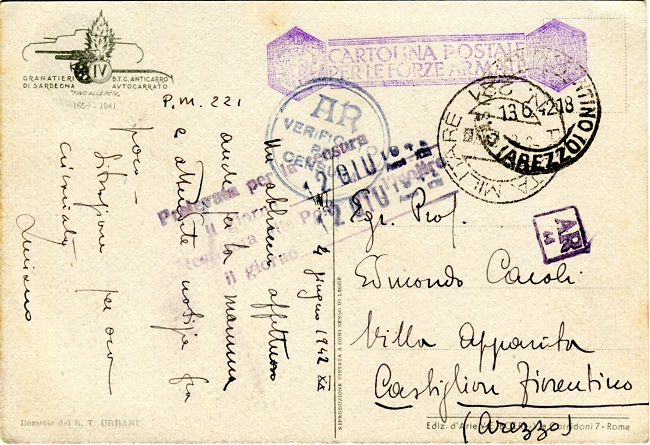 GRANATIERI
DI SARDEGNA
IV
BTG. ANTICARRO
AUTOCARRATO
"FINO ALLA META"
1659 - 1941
P.M. 221
CARTOLINA POSTALE
PER LE FORZE ARMATE
AR
VERIFICATO
PER
CENSURA
Prelevata per la censura
il giorno
12 GIU 1942
Anno XX
il giorno
12 GIU
POSTA MILITARE
13.6.42.18
(AREZZO)
AR
44
4 giugno 1942 XX
Un abbraccio affettuoso
anche per la mamma
e attendete notizie fra
poco -
per ora
Luciano
Egr. Prof.
Edmondo Caroli
Villa Apparita
Castiglion Fiorentino
(Arezzo)
RIPRODUZIONE VIETATA A OGNI SENSO DI LEGGE
Bozzetto del S. T. URBANI
Ediz. d'Arte
Corridoni 7 - Roma